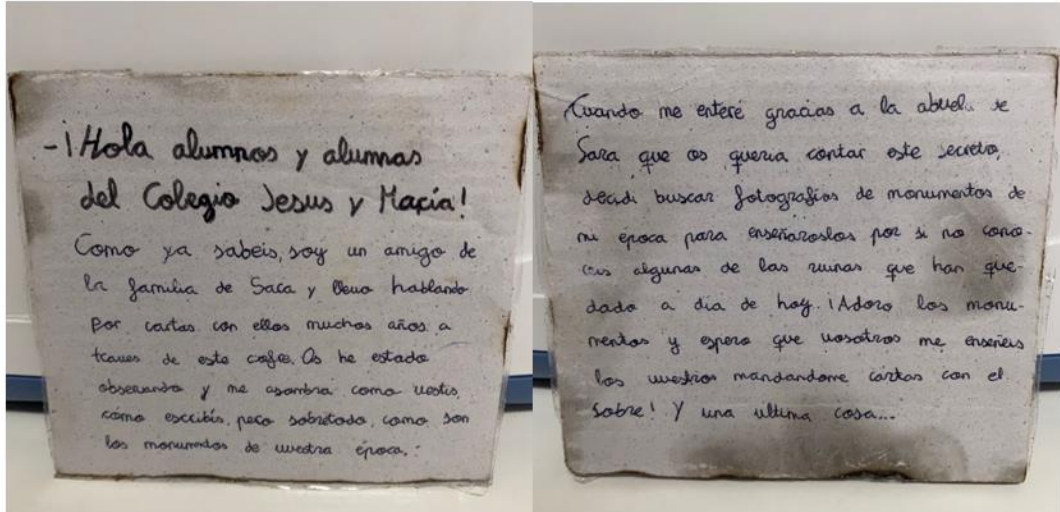 -¡Hola alumnos y alumnas
del Colegio Jesus y María!
Como ya sabeis, soy un amigo de
la familia de Sara y llevo hablando
por cartas con ellos muchos años a
traves de este cofre. Os he estado
observando y me asombra como vestis,
como escribís, pero sobretodo, como son
los monumentos de vuestra época.
Cuando me enteré gracias a la abuela de
Sara que os queria contar este secreto,
decidi buscar fotografias de monumentos de
mi época para enseñaroslos por si no cono-
ceis algunas de las ruinas que han que-
dado a dia de hoy. ¡Adoro los monu-
mentos y espero que vosotros me enseñeis
los vuestros mandandome cartas con el
sobre! Y una ultima cosa...